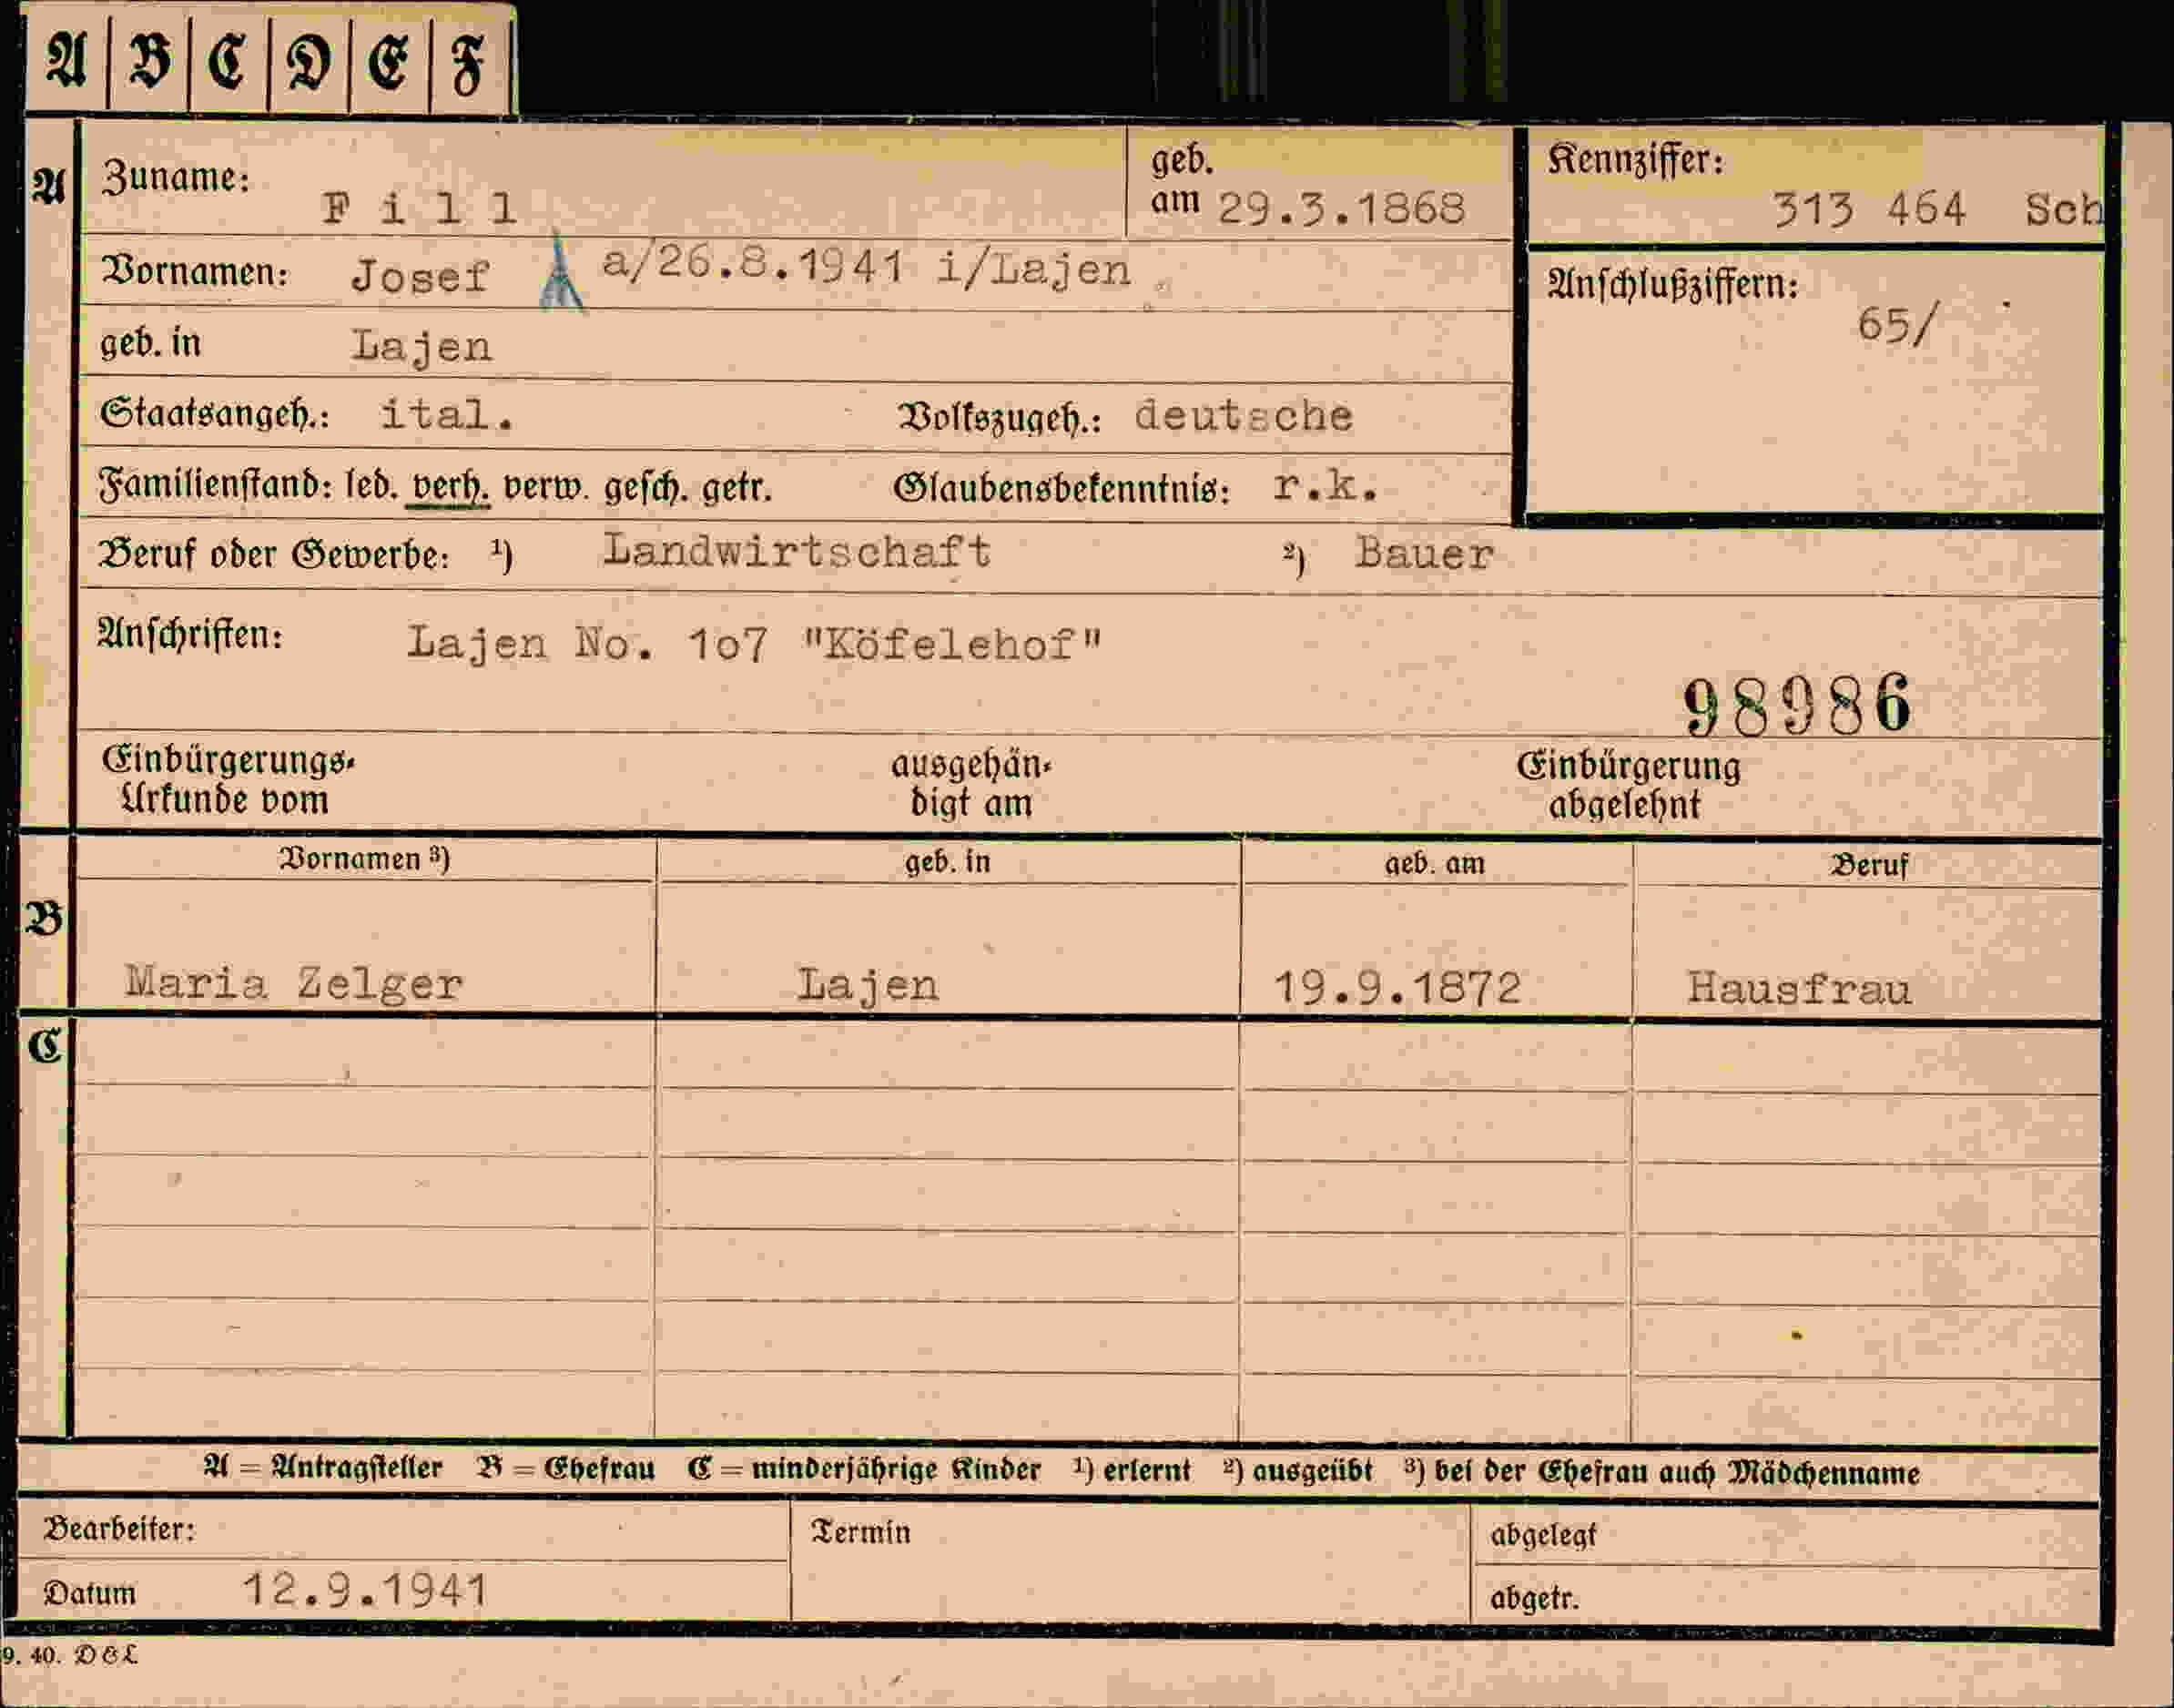 A B C D E F
A Zuname: Fill geb. am 29.3.1868 Kennziffer: 313 464 Sch
Vornamen: Josef a/26.8.1941 i/Lajen Anschlußziffern: 65/
geb. in Lajen
Staatsangeh.: ital. Volkszugeh.: deutsche
Familienstand: led. verh. verw. gesch. getr. Glaubensbekenntnis: r.k.
Beruf oder Gewerbe: ¹) Landwirtschaft ²) Bauer
Anschriften: Lajen No. 1o7 "Köfelehof"
98986
Einbürgerungs- ausgehän- Einbürgerung
Urkunde vom digt am abgelehnt
Vornamen ³) geb. in geb. am Beruf
B
Maria Zelger Lajen 19.9.1872 Hausfrau
C
A = Antragsteller B = Ehefrau C = minderjährige Kinder ¹) erlernt ²) ausgeübt ³) bei der Ehefrau auch Mädchenname
Bearbeiter: Termin abgelegt
Datum 12.9.1941 abgetr.
9. 40. D&L